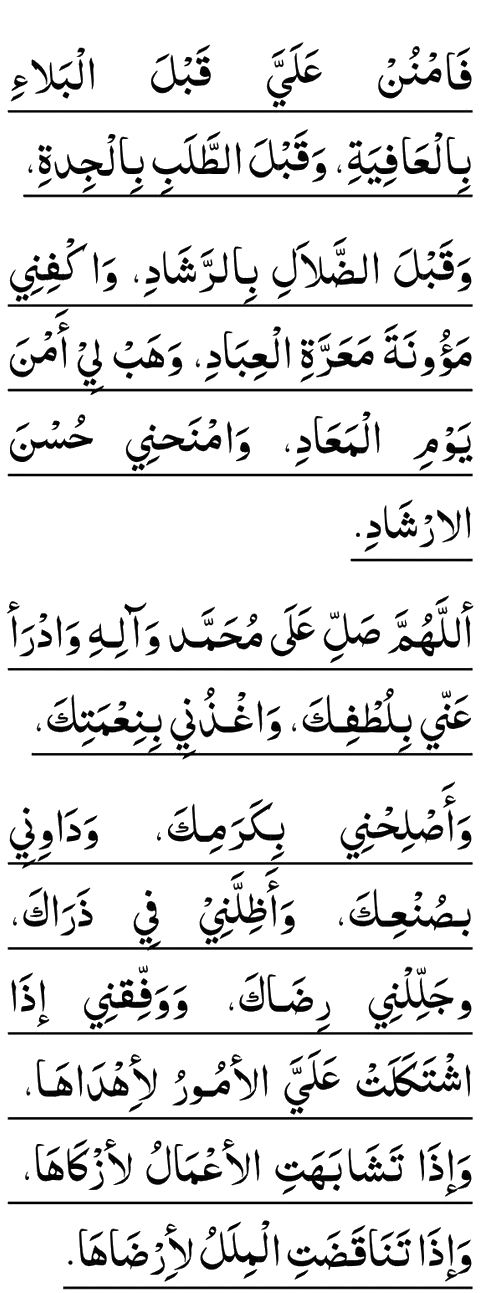 فَامْنُنْ عَلَيَّ قَبْلَ الْبَلاءِ
بِالْعَافِيَةِ، وَقَبْلَ الطَّلَبِ بِالْجِدةِ،
وَقَبْلَ الضَّلاَلِ بِالرَّشَادِ، وَاكْفِنِي
مَؤُونَةَ مَعَرَّةِ الْعِبَادِ، وَهَبْ لِيْ أَمْنَ
يَوْمِ الْمَعَادِ، وَامْنَحنِي حُسْنَ
الارْشَادِ.
أللَّهُمَّ صَلِّ عَلَى مُحَمَّـد وَآلِـهِ وَادْرَأ
عَنّي بِلُطْفِـكَ، وَاغْـذُنِي بِنِعْمَتِكَ،
وَأَصْلِحْنِي بِكَرَمِـكَ، وَدَاوِنِي
بـصُنْعِـكَ، وَأَظِلَّنِيْ فِي ذَرَاكَ،
وجَلِّلْنِي رِضَـاكَ، وَوَفِّقنِي إذَا
اشْتَكَلَتْ عَلَيَّ الأمُـورُ لأِهْدَاهَـا،
وَإذَا تَـشَـابَـهَتِ الأعْمَالُ لأزْكَاهَا،
وَإذَا تَنَاقَـضَتِ الْمِلَلُ لأِرْضَاهَا.